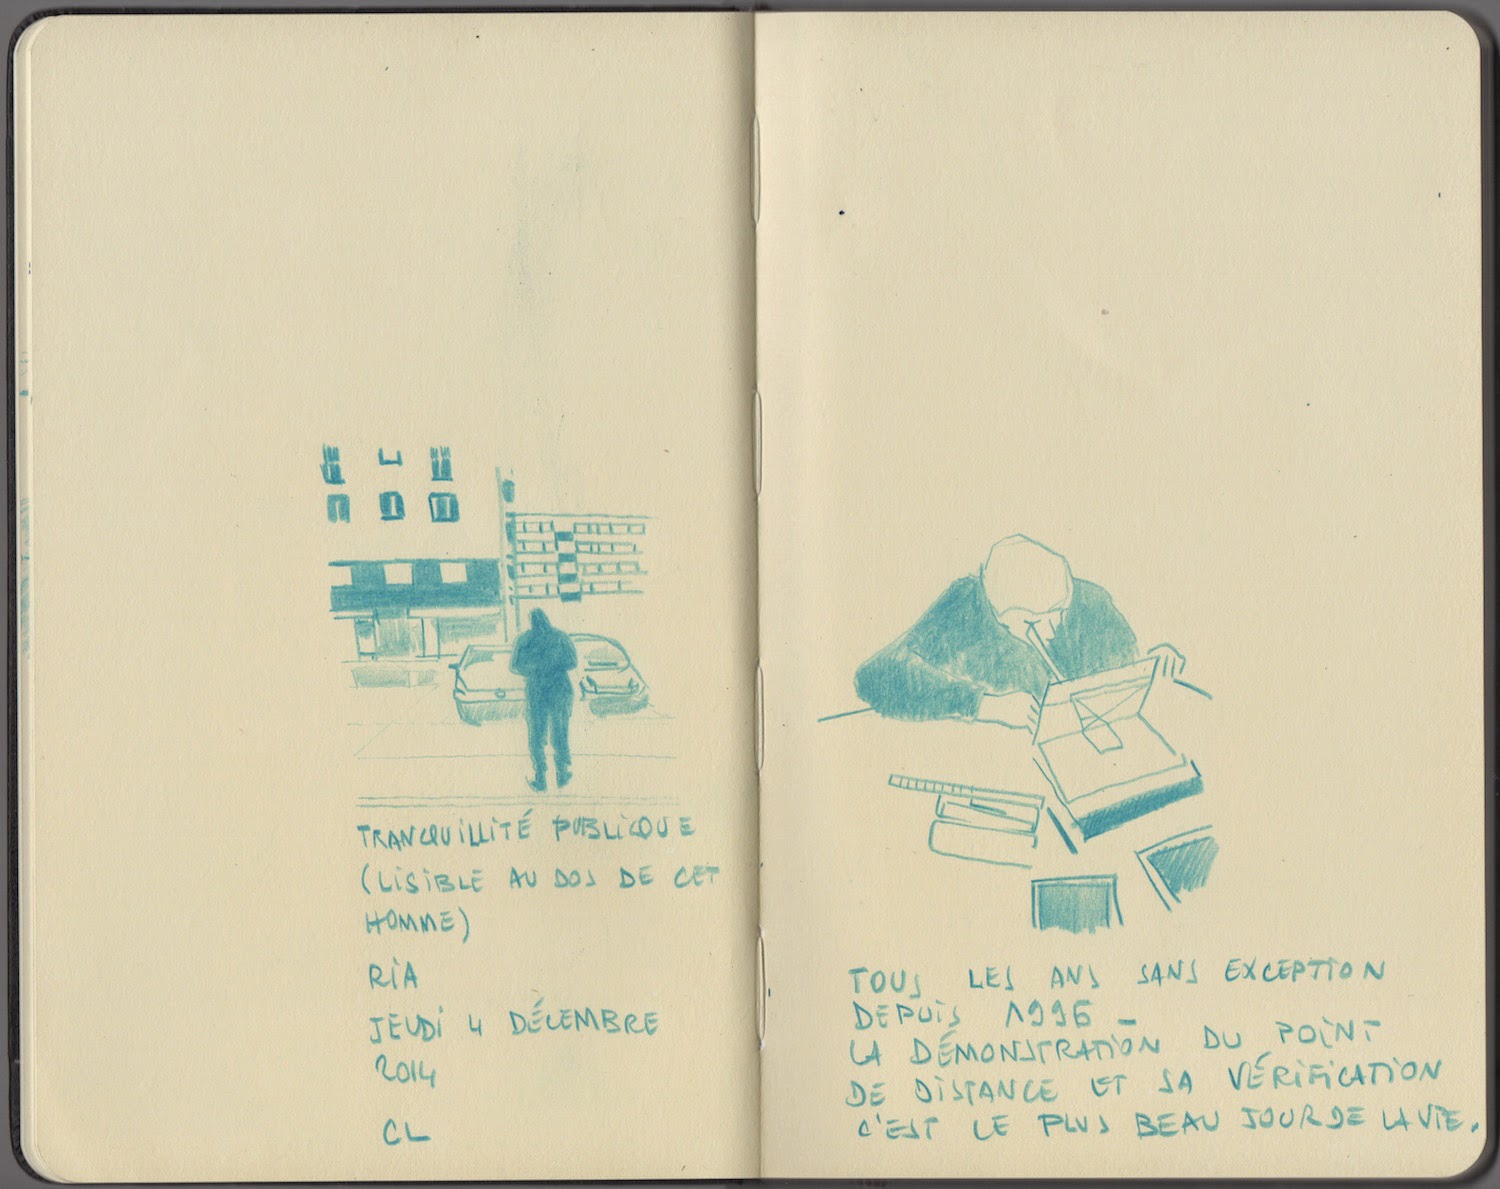 TRANQUILLITÉ PUBLIQUE
(LISIBLE AU DOS DE CET
HOMME)
RIA
JEUDI 4 DÉCEMBRE
2014
CL
TOUS LES ANS SANS EXCEPTION
DEPUIS 1996 _
LA DÉMONSTRATION DU POINT
DE DISTANCE ET SA VÉRIFICATION
C'EST LE PLUS BEAU JOUR DE LA VIE.